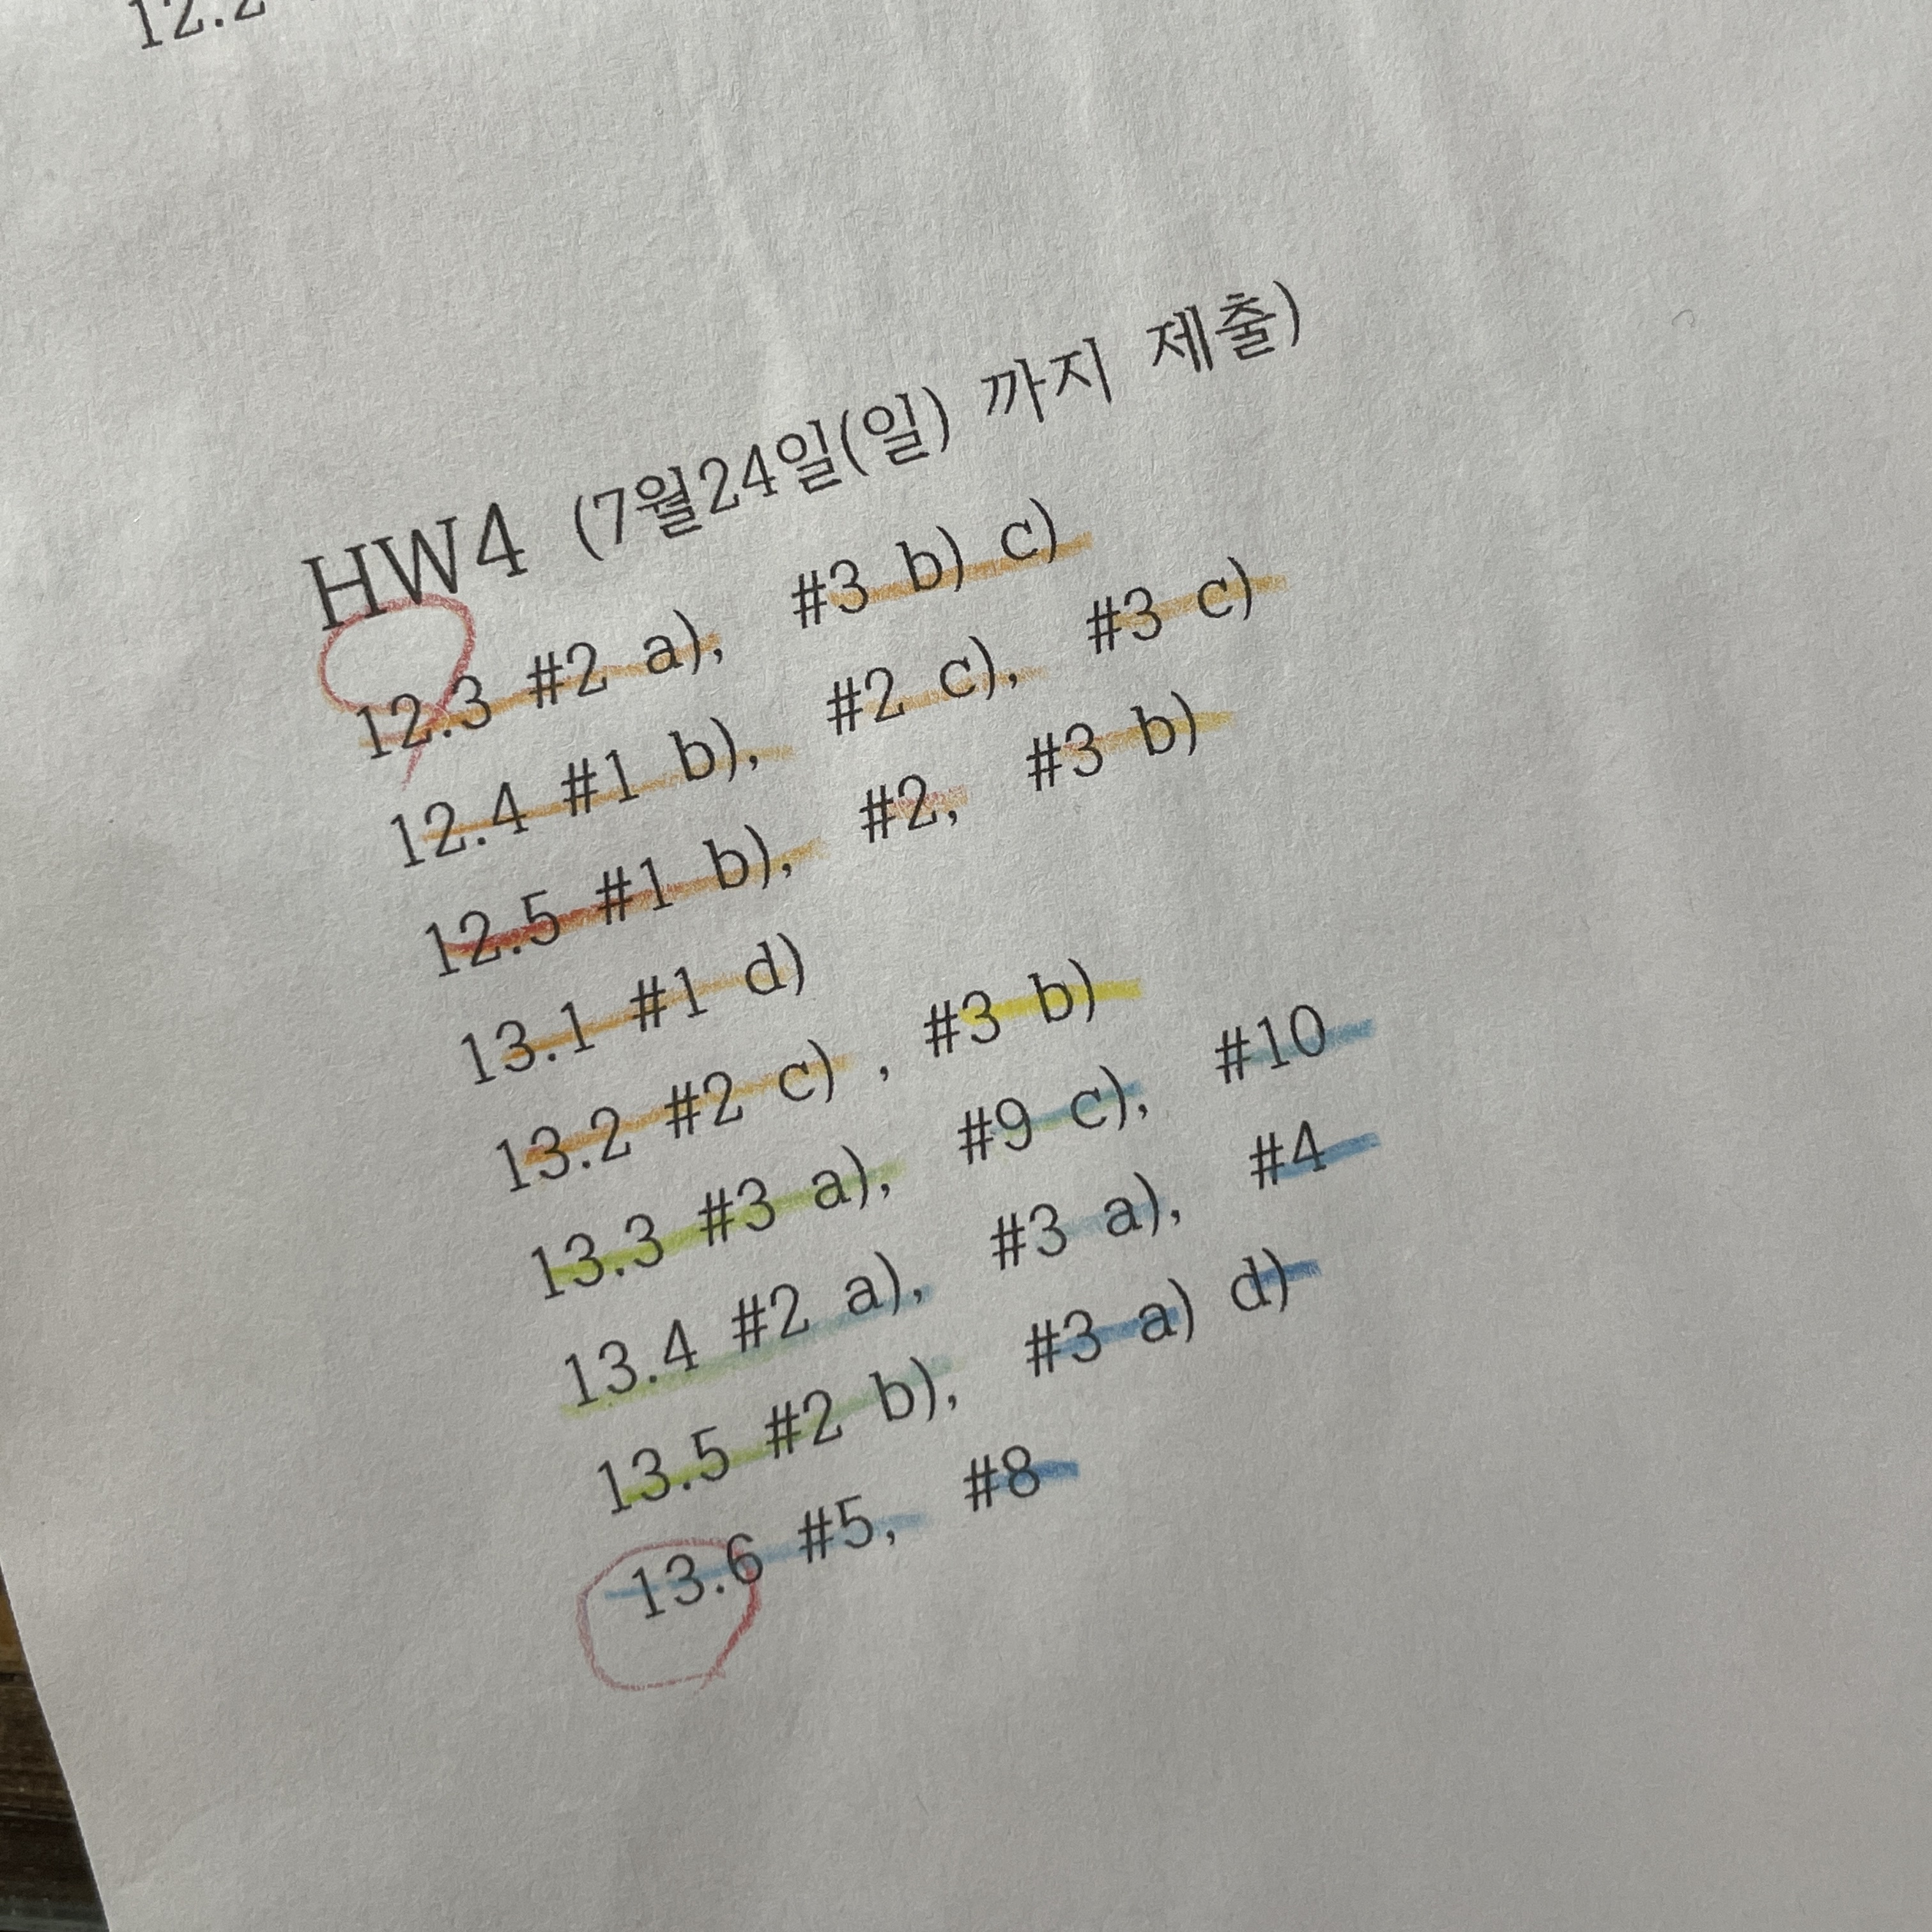 12.2
HW4 (7월24일(일) 까지 제출)
12.3 #2 a), #3 b) c)
12.4 #1 b), #2 c), #3 c)
12.5 #1 b), #2, #3 b)
13.1 #1 d)
13.2 #2 c) , #3 b)
13.3 #3 a), #9 c), #10
13.4 #2 a), #3 a), #4
13.5 #2 b), #3 a) d)
13.6 #5, #8